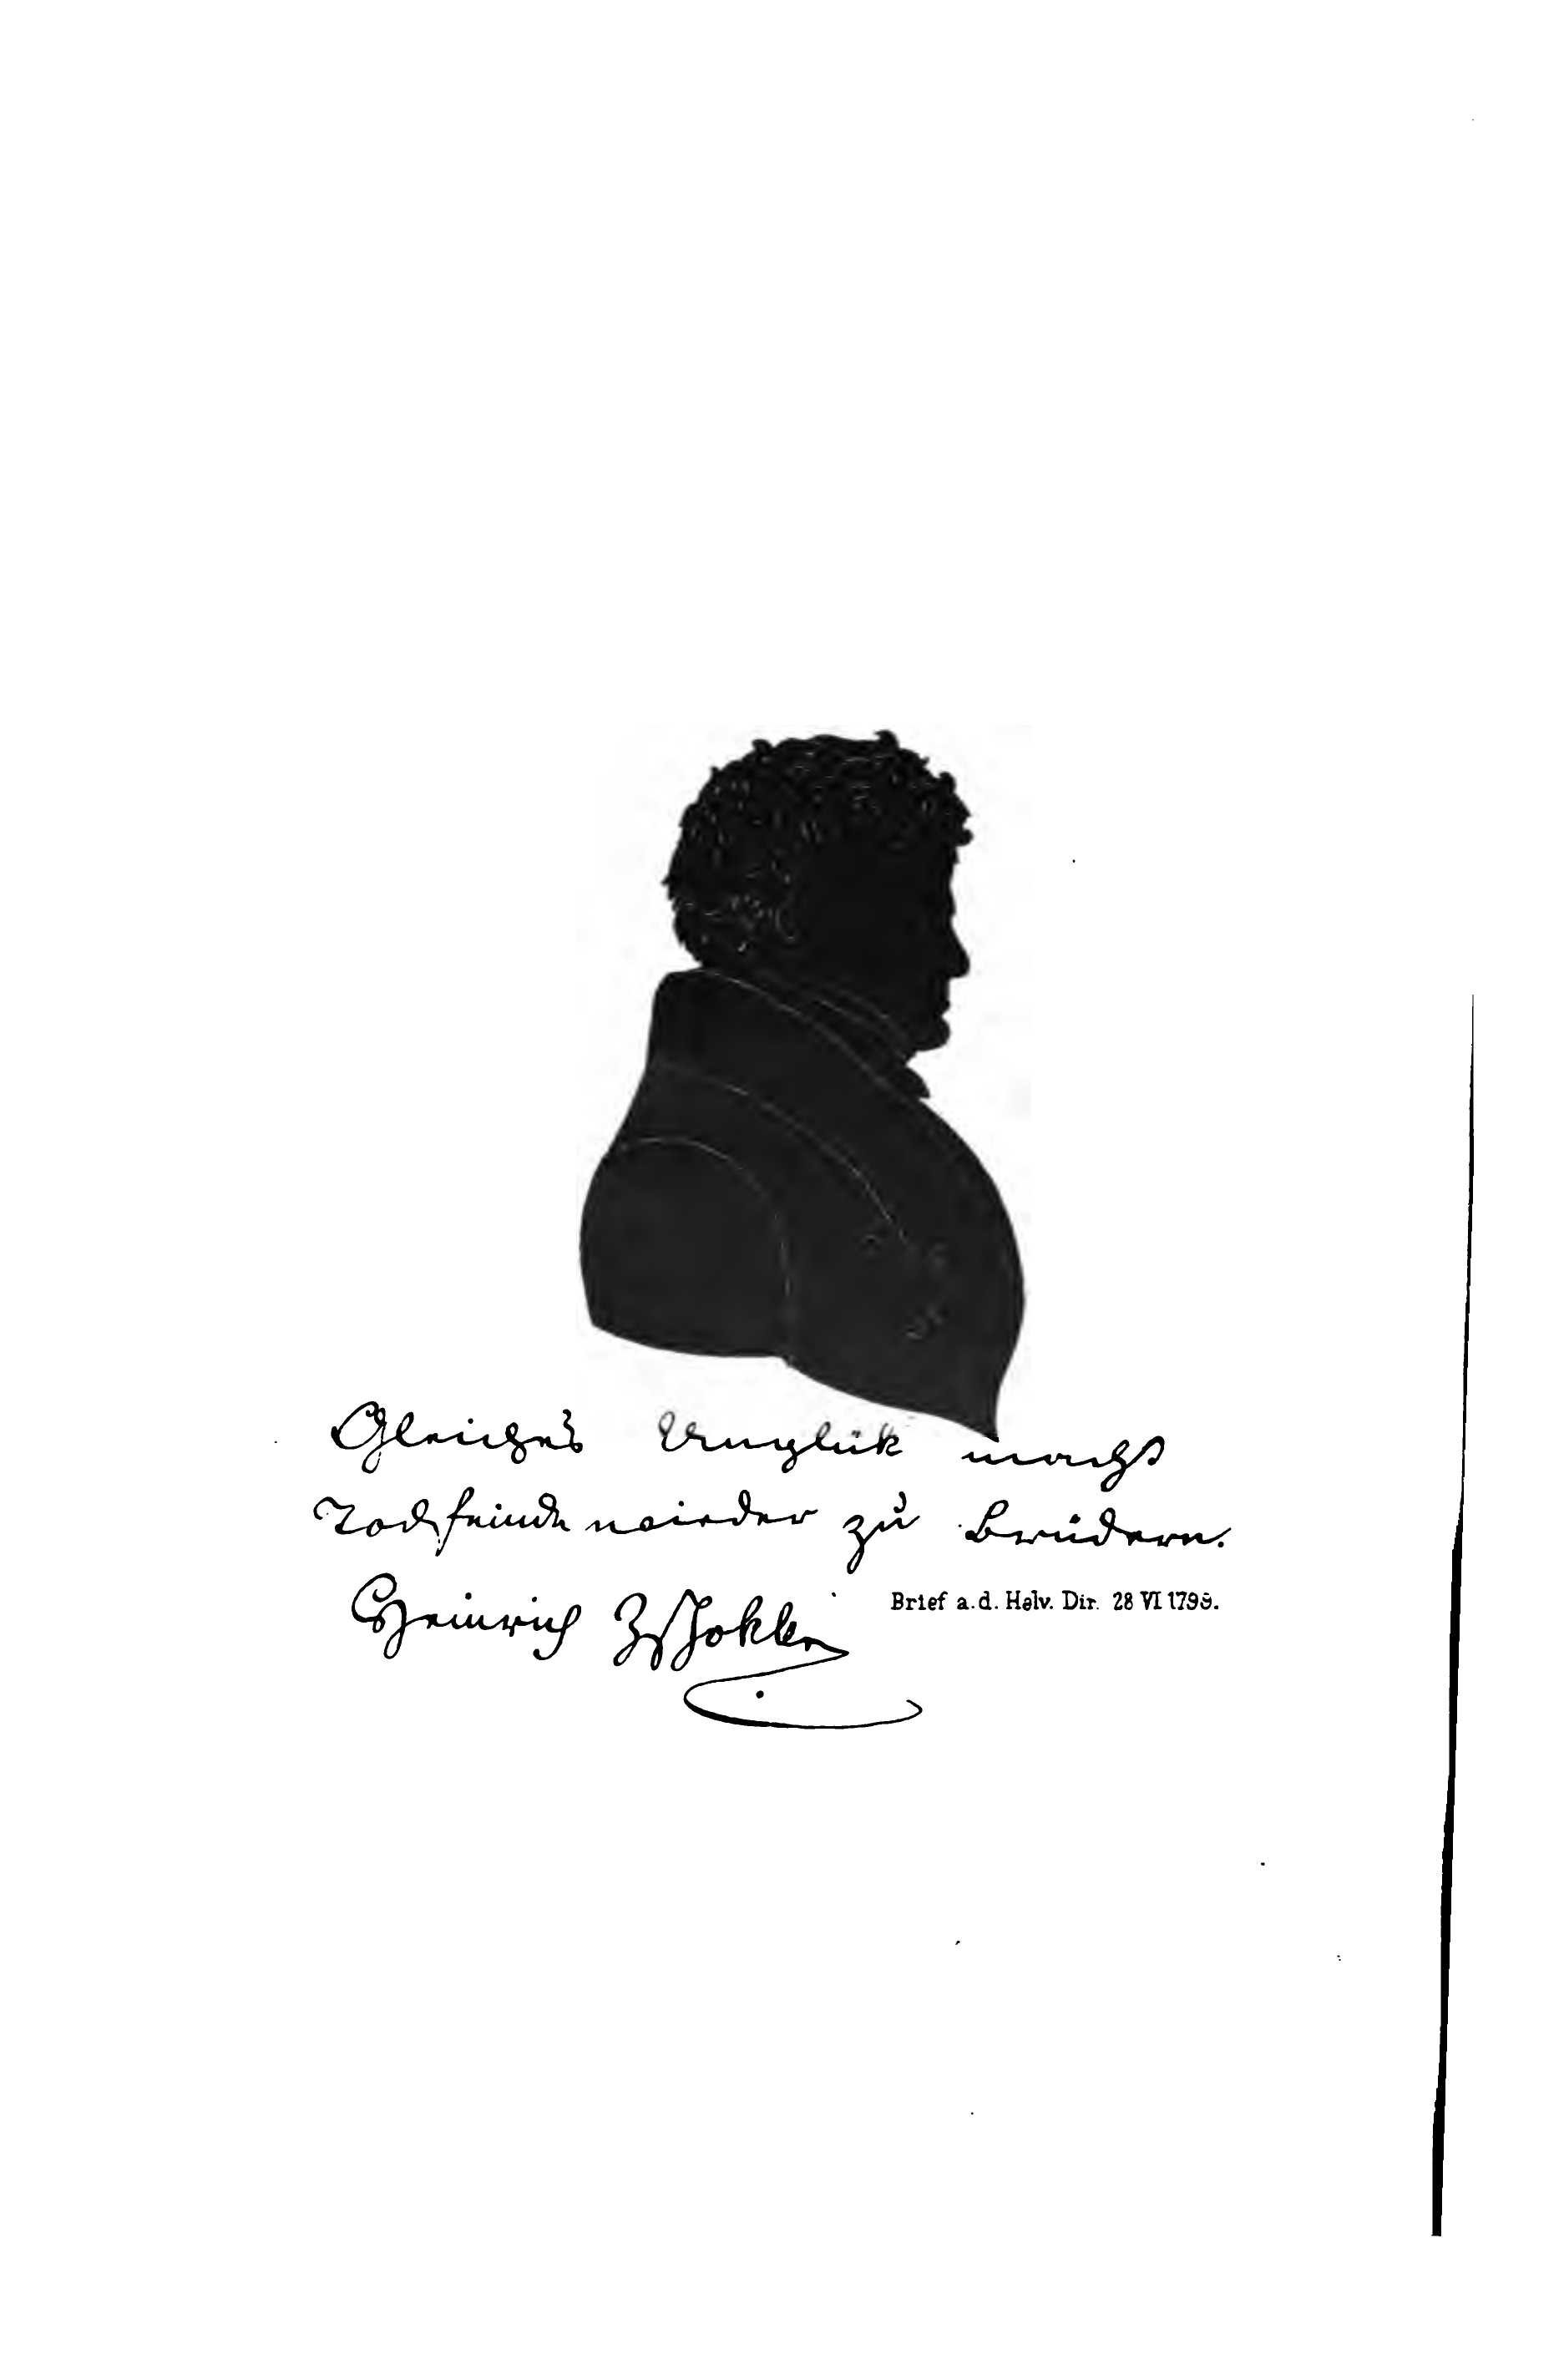 Gleiches Unglük macht
Todfeinde wieder zu Brüdern.
Heinrich Zschokke
Brief a.d. Helv. Dir. 28 VI 1798.